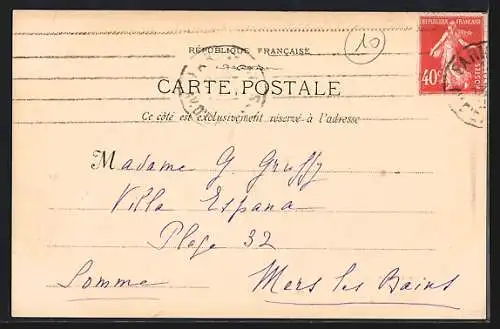 RÉPUBLIQUE FRANÇAISE
10
REPUBLIQUE FRANÇAISE
40c
POSTES
CARTE POSTALE
Ce côté est exclusivement réservé à l'adresse
Madame G. Gruffy
Villa Espana
Plage 32
Somme Mers les Bains